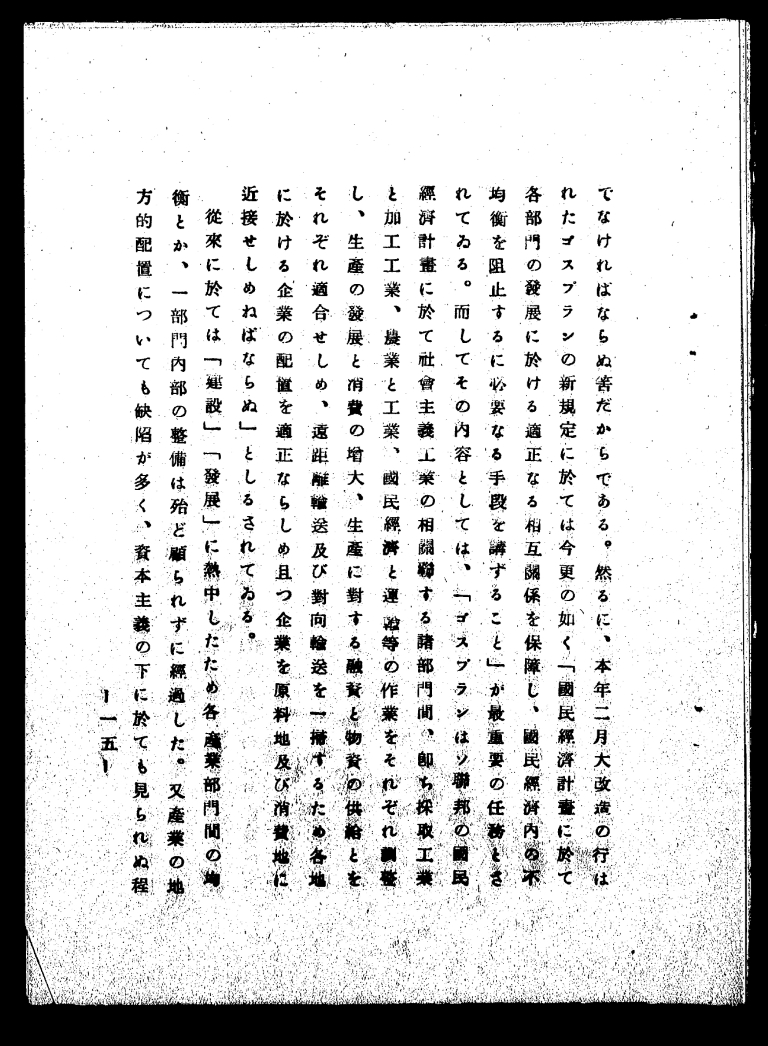 でなければならぬ筈だからである。然るに、本年二月大改造の行は
れたゴスプランの新規定に於ては今更の如く「國民經濟計畫に於て
各部門の發展に於ける適正なる相互關係を保障し、國民經濟内の不
均衡を阻止するに必要なる手段を講ずること」が最重要の任務とさ
れてゐる。而してその内容としては、「ゴスプランはソ聯邦の國民
經濟計畫に於て社會主義工業の相關聯する諸部門間、卽ち採取工業
と加工工業、農業と工業、國民經濟と運輸等の作業をそれぞれ調整
し、生產の發展と消費の增大、生產に對する融資と物資の供給とを
それぞれ適合せしめ、遠距離輸送及び對向輸送を一掃するため各地
に於ける企業の配置を適正ならしめ且つ企業を原料地及び消費地に
近接せしめねばならぬ」としるされてゐる。
從來に於ては「建設」「發展」に熱中したため各產業部門間の均
衡とか、一部門内部の整備は殆ど顧られずに經過した。又產業の地
方的配置についても缺陷が多く、資本主義の下に於ても見られぬ程
—一五—